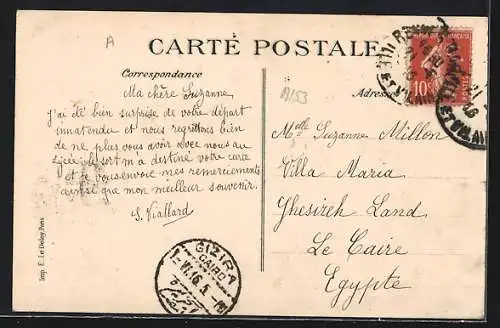 A
CARTE POSTALE
Correspondance
A153
Adresse
10
Ma chère Suzanne
J'ai été bien surprise de votre départ
innatendu et nous regrettons bien
de ne plus vous avoir avec nous au
lycée le sort m'a destiné votre
et je vous envoie mes remerciements
ainsi que mon meilleur souvenir.
S. Viallard
Melle Suzanne Millon
Villa Maria
Ghesireh Land
Le Caire
Egypte
GIZIRA
CAIRO
1-VI.10.5
Imp. E. Le Deley, Paris